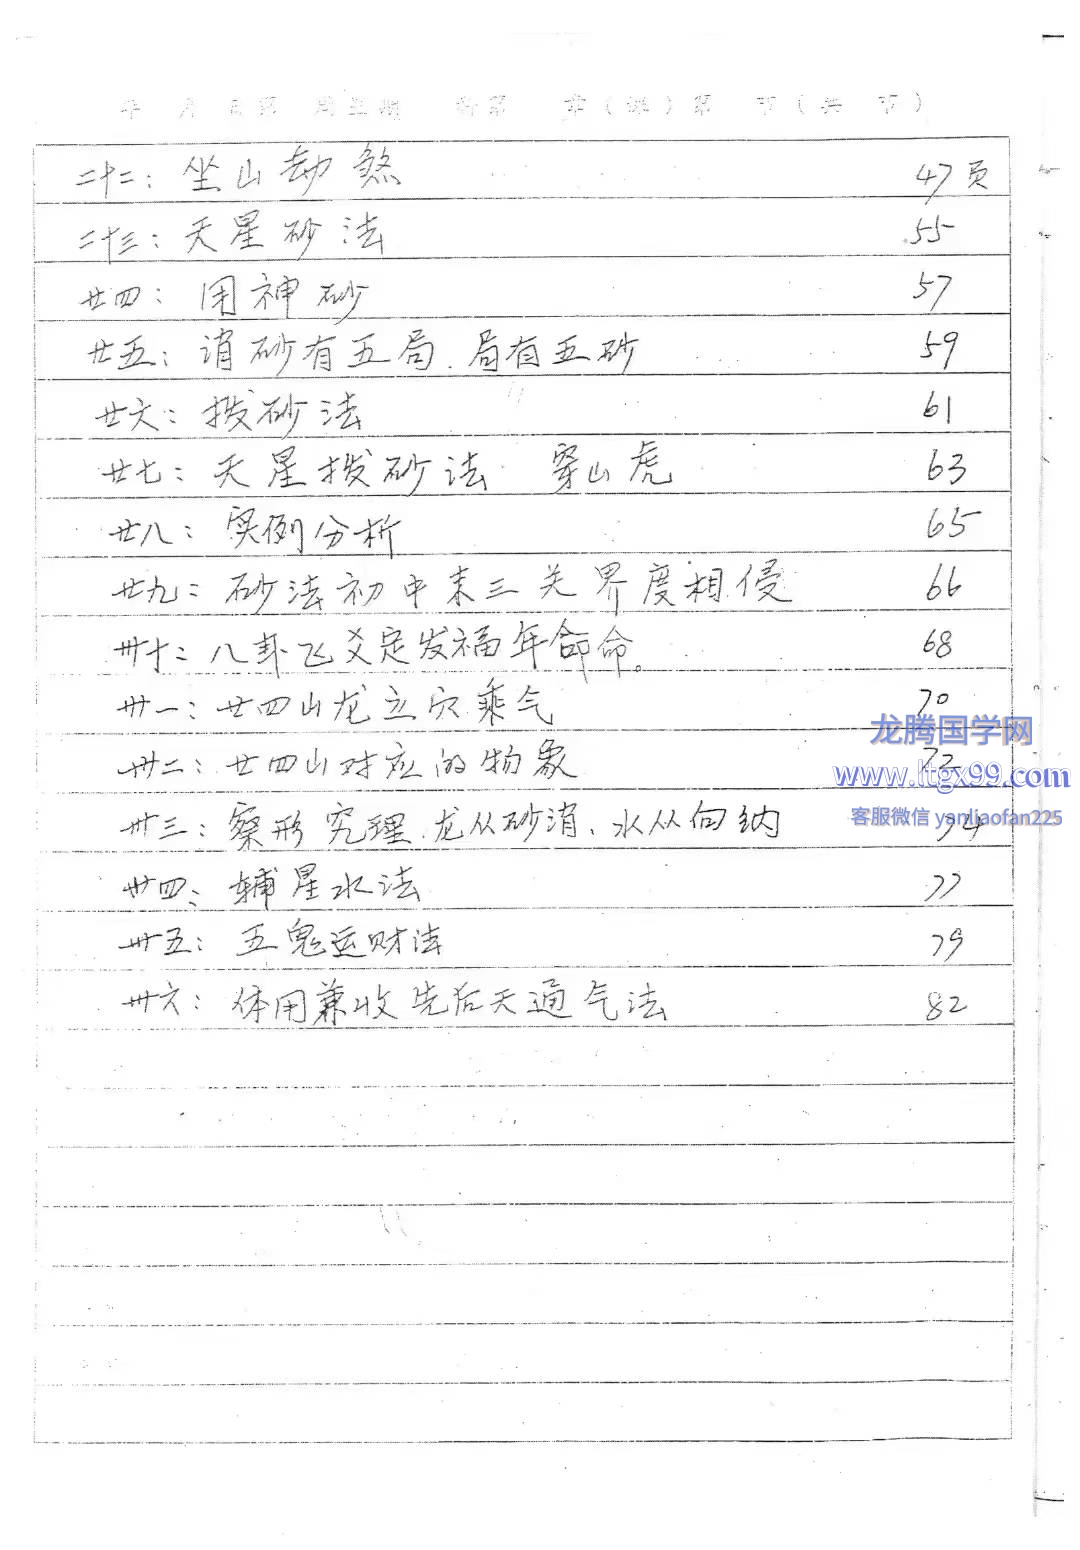 年 月 日第 周星期 第 章（课）第 节（共 节）
二十二：坐山劫煞 47页
二十三：天星砂法 55
廿四：用神砂 57
廿五：消砂有五局.局有五砂 59
廿六：拨砂法 61
廿七：天星拨砂法 穿山虎 63
廿八：实例分析 65
廿九：砂法初中末三关界度相侵 66
卅十：八卦飞爻定发福年命命。 68
卅一：廿四山龙立穴乘气 70
龙腾国学网
卅二：廿四山对应的物象 72
www.ltgx99.com
卅三：察形究理.龙从砂消、水从向纳 74
客服微信 yanliaofan225
卅四：辅星水法 77
卅五：五鬼运财法 79
卅六：体用兼收先后天通气法 82